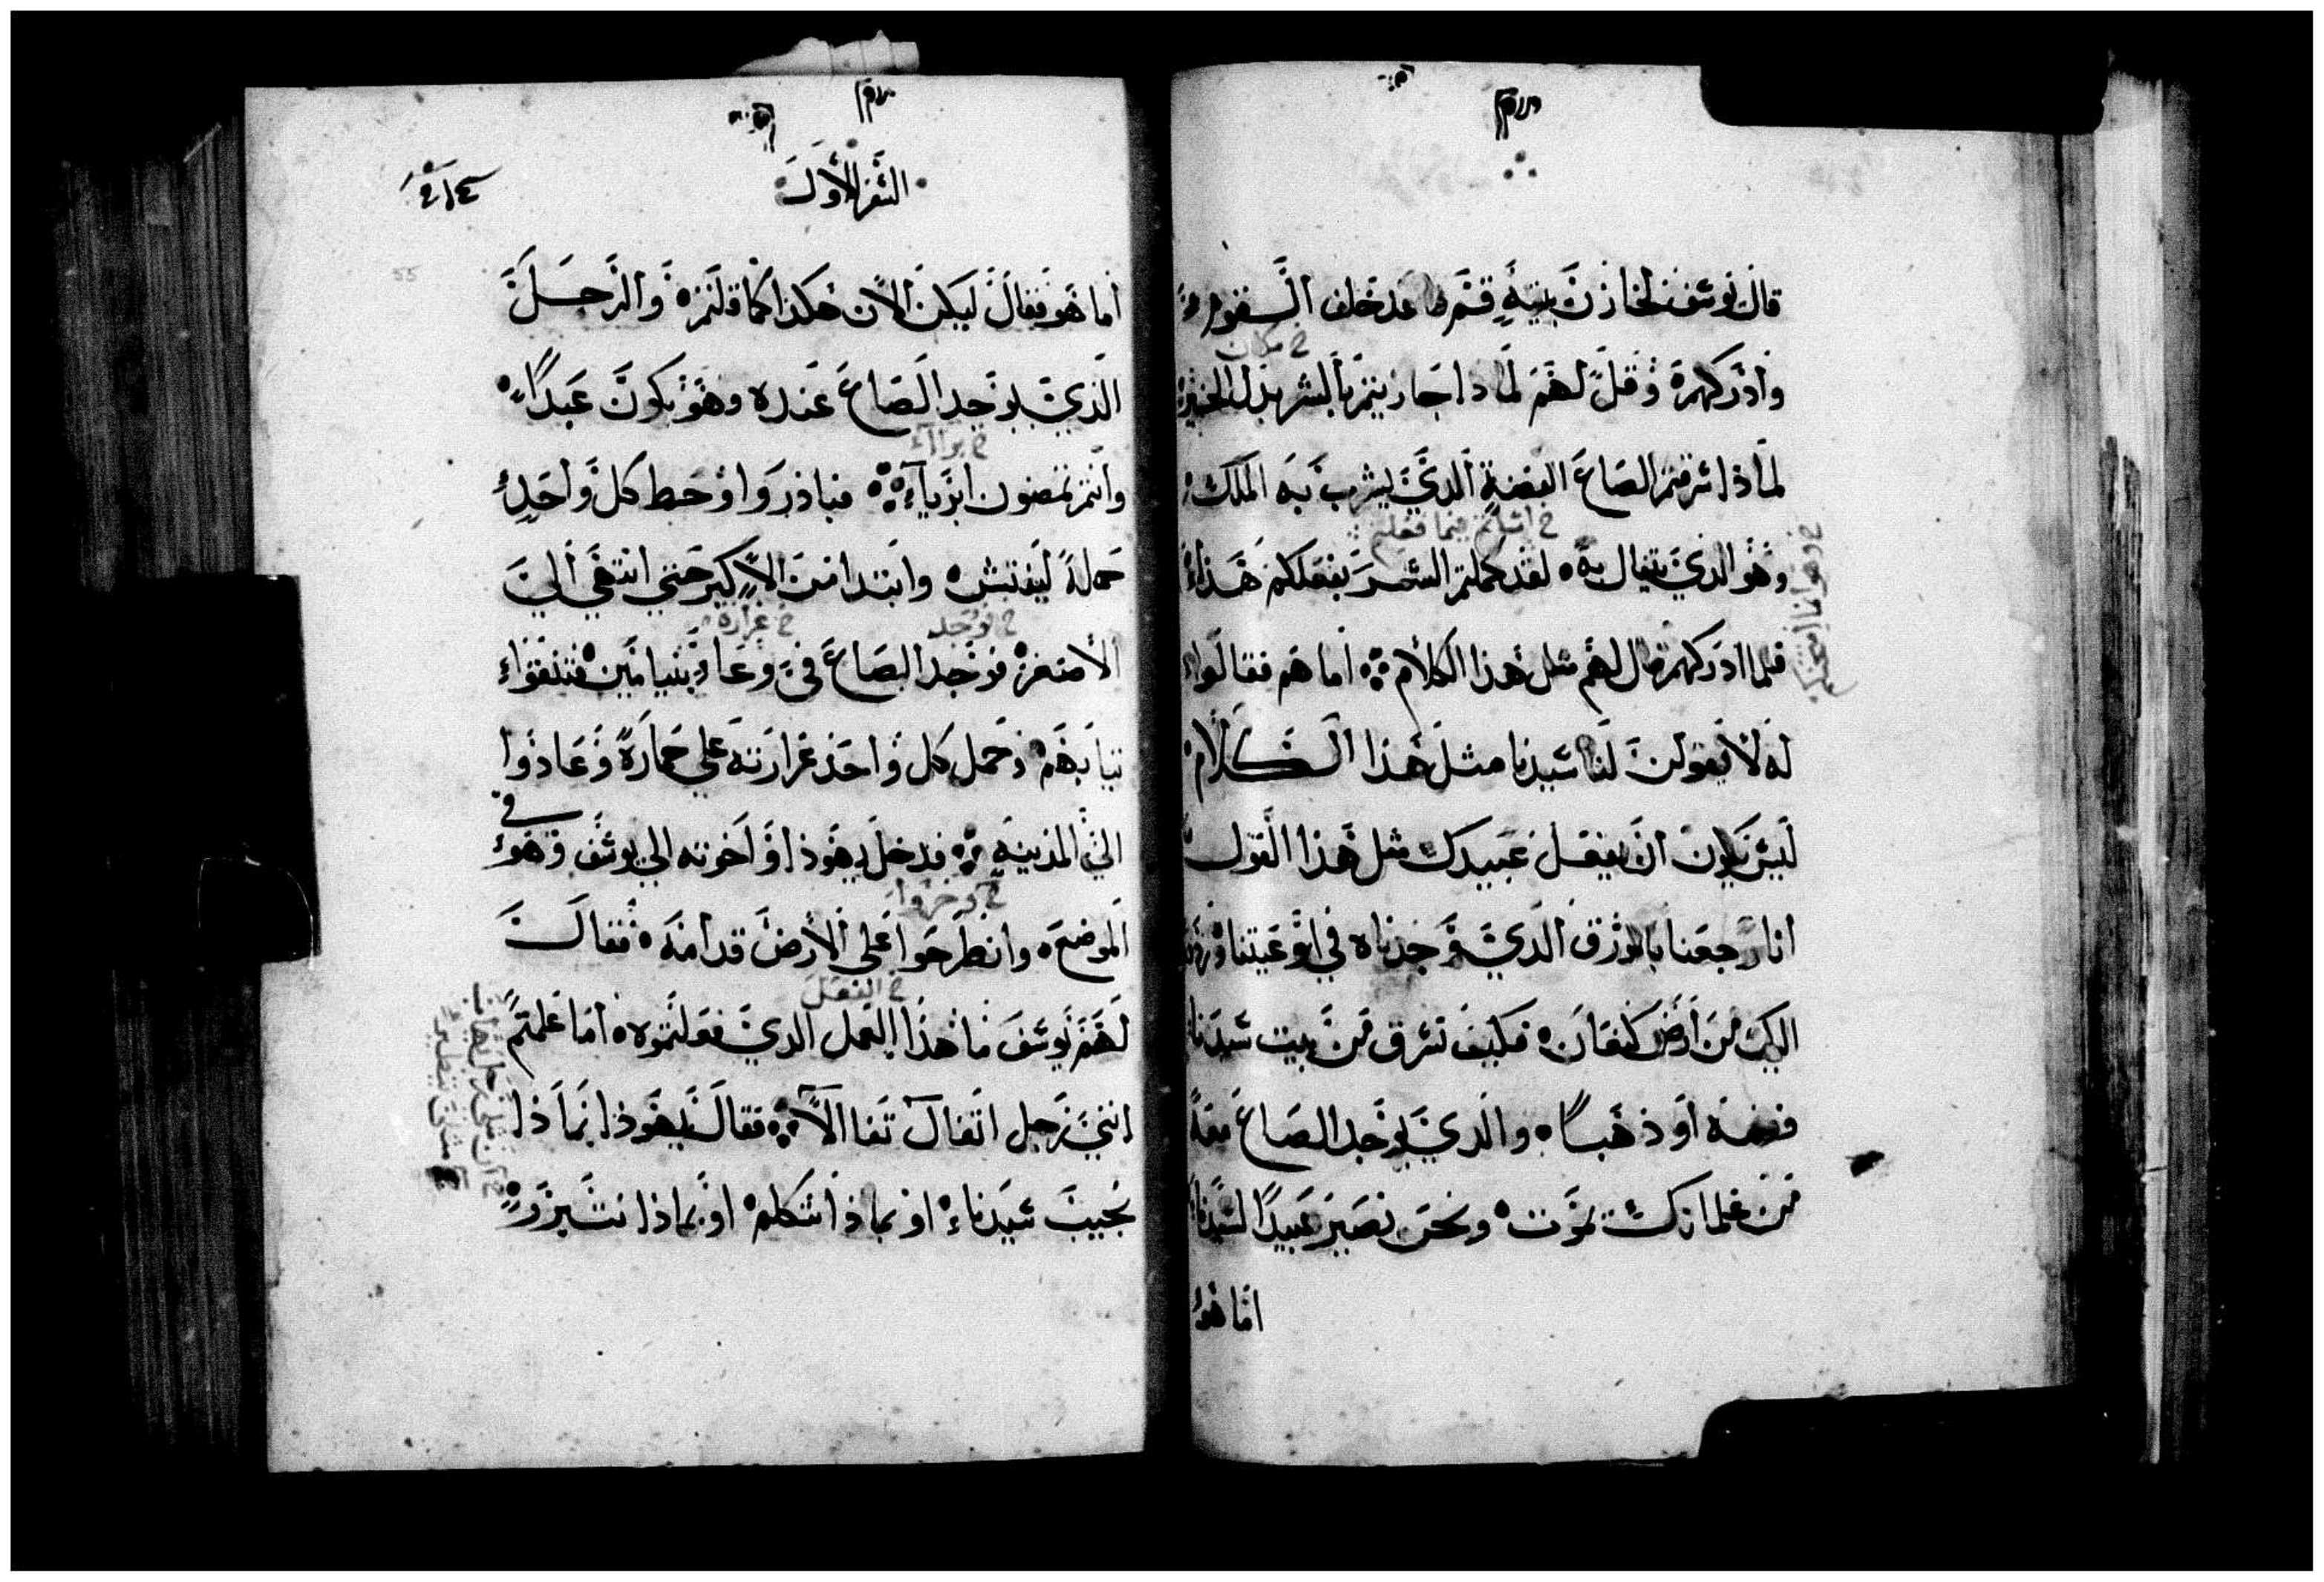 قال يوسف لخازن بيته قم عد خلف القوم
وادركهم وقل لهم لماذا جازيتم بالشر بدل الخير
في مكان
لماذا سرقتم الصاع الفضة الذي يشرب به الملك
وهو الذي يتفال به لقد كملتم الشر بفعلكم هذا
خ اسأتم فيما فعلتم
فلما ادركهم قال لهم مثل هذا الكلام اما هم فقالوا
له لا يقولن لنا سيدنا مثل هذا الكلام
ليس يكون ان يفعل عبيدك مثل هذا القول
انا رجعنا بالورق الذي وجدناه في اوعيتنا
اليك من ارض كنعان فكيف نسرق من بيت سيدنا
فضة او ذهبا والذي يوجد الصاع معه
من غلمانك يموت ونحن نصير عبيدا لسيدنا
اما هو
السفر الاول
55
اما هو فقال ليكن الان هكذا كما قلتم والرجل
الذي يوجد الصاع عنده وهو يكون عبدا
خ برآء
وانتم تمضون ابرياء فبادروا وحط كل واحد
حمله ليفتش وابتدا من الاكبر حتي انتهي الي
خ فوجد خ غرارة
الاصغر فوجد الصاع في وعاء بنيامين فشققوا
ثيابهم وحمل كل واحد غرارته علي حماره وعادوا
في
الي المدينة فدخل يهوذا واخوته الي يوسف وهو
خ وخروا
الموضع وانطرحوا علي الارض قدامه فقال
خ الفعل
لهم يوسف ما هذا العمل الذي فعلتموه اما علمتم
انني رجل اتفال تفالا فقال يهوذا بماذا
نجيب سيدنا او بماذا نتكلم او بماذا نتبرر